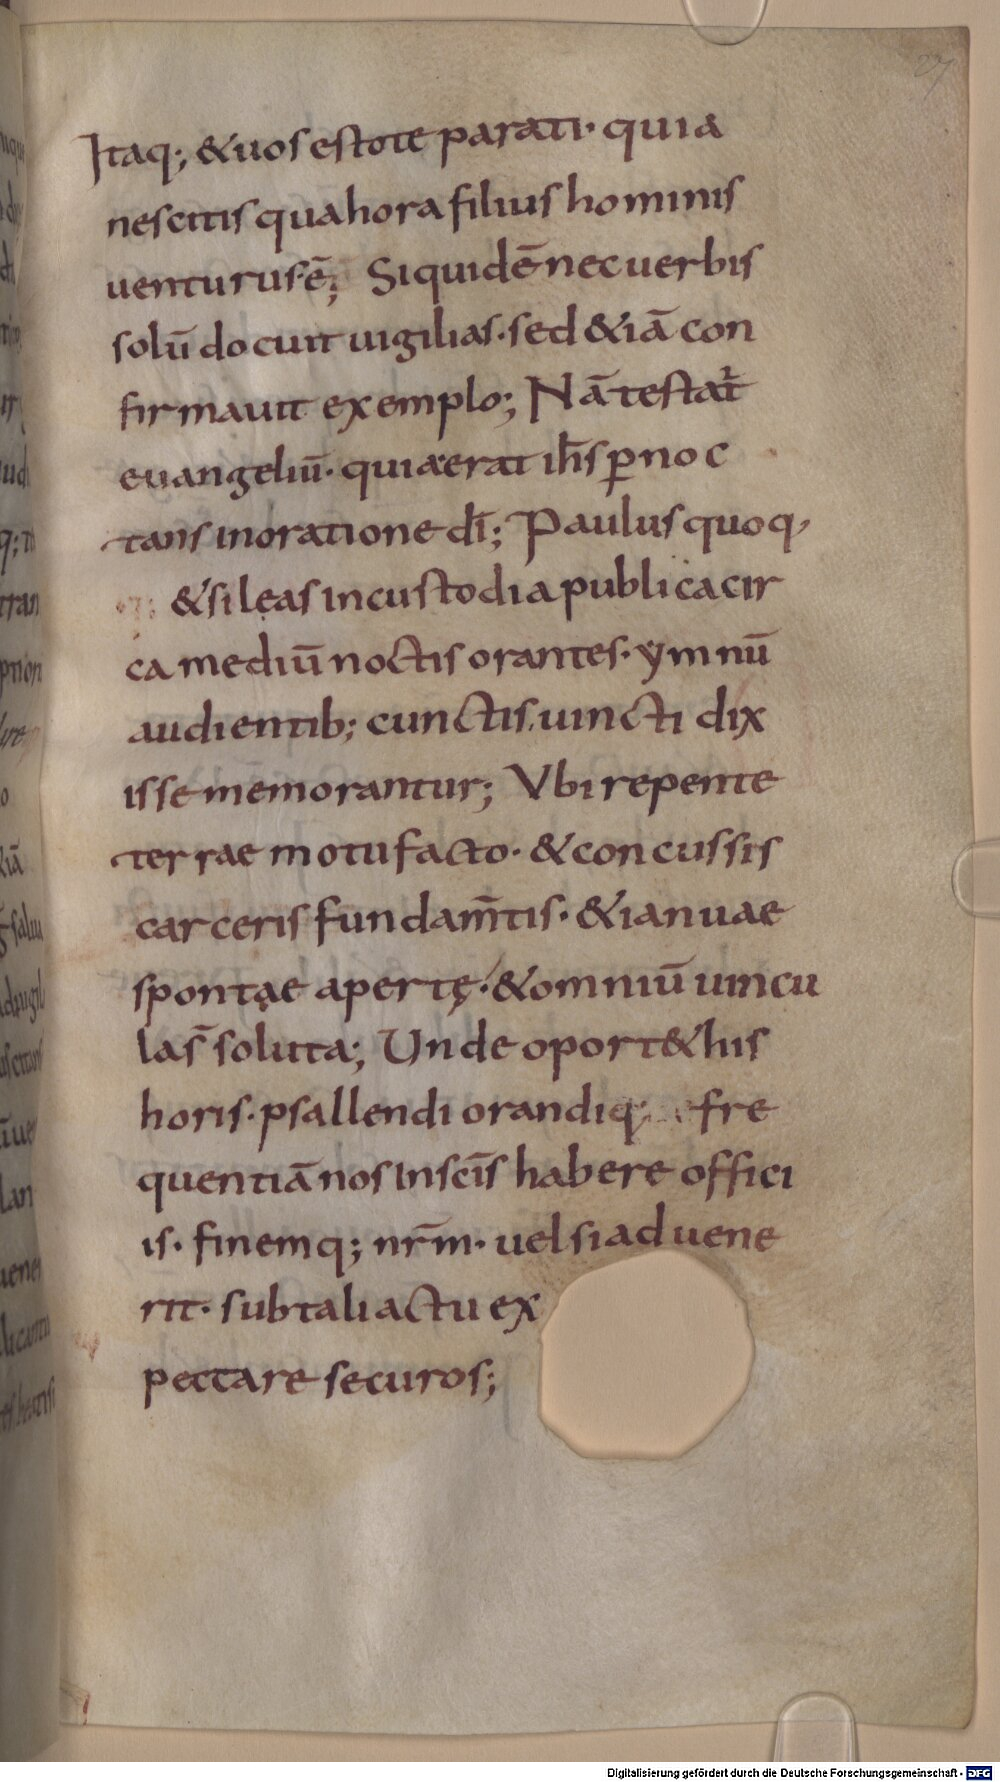 27
Itaq; & uos estote parati· quia
nescitis qua hora filius hominis
uenturus ē; Siquidē nec uerbis
solū docuit uigilias· sed &iā con
firmauit exemplo; Nā testat̄
euangeliū· quia erat ih̄s ꝑnoc
tans in oratione dī; Paulus quoq,
& sileas in custodia publica cir
ca mediū noctis orantes· ymnū
audientib; cunctis uincti dix
isse memorantur; Vbi repente
terrae motu facto· & concussis
carceris fundam̄tis· & ianuae
spontae apertę· & omniū uincu
la s̄ soluta; Unde oport& his
horis· psallendi orandiq; fre
quentiā nos in sc̄is habere offici
is· finemq; nr̄m· uel si aduene
rit· sub tali actu ex
pectare securos;
Digitalisierung gefördert durch die Deutsche Forschungsgemeinschaft - DFG